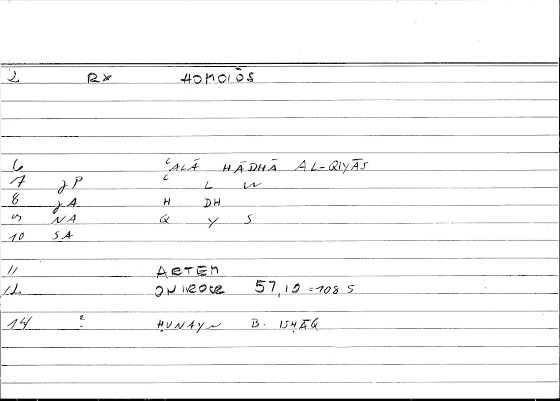 2 RX HOMOIŌS
6 ʿALĀ HĀDHĀ AL-QIYĀS
7 JP ʿ L W
8 JA H DH
9 NA Q Y S
10 SA
11 ARTEM
12 ONIROCR 57,10 = 108.5
14 ? ḤUNAYN B. ISḤĀQ